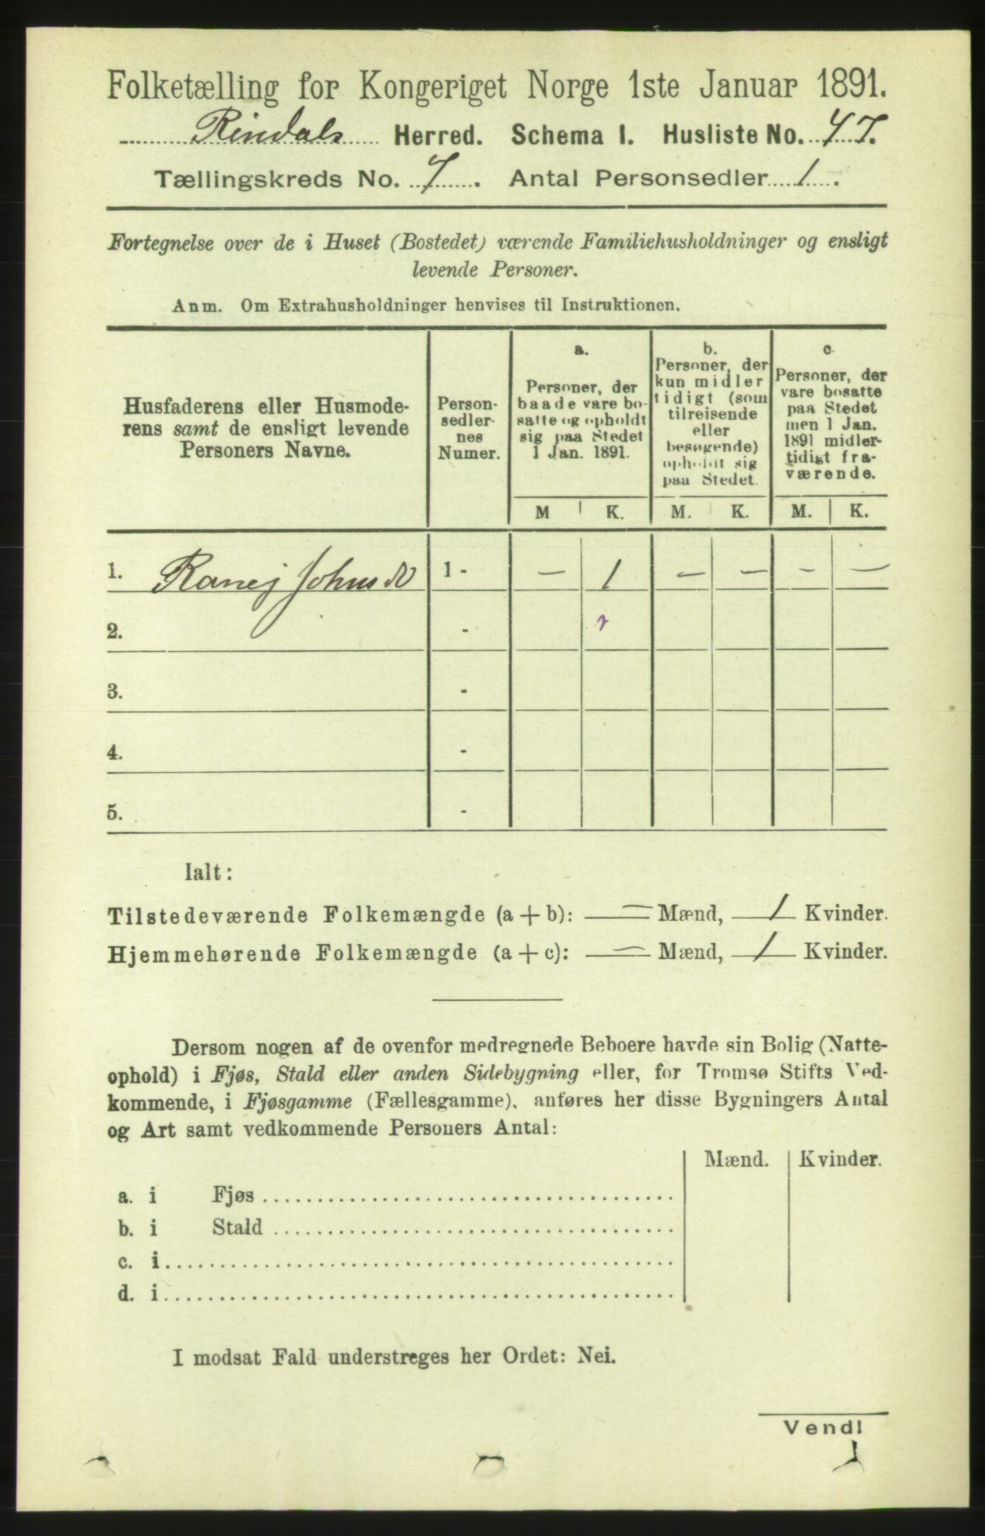 Folketælling for Kongeriget Norge 1ste Januar 1891.
Rindals Herred. Schema I. Husliste No. 47.
Tællingskreds No. 7. Antal Personsedler 1.
Fortegnelse over de i Huset (Bostedet) værende Familiehusholdninger og ensligt
levende Personer.
Anm. Om Extrahusholdninger henvises til Instruktionen.
Husfaderens eller Husmode-
rens samt de ensligt levende
Personers Navne.
Person-
sedler-
nes
Numer.
a.
Personer, der
baade vare bo-
satte og opholdt
sig paa Stedet
1 Jan. 1891.
b.
Personer, der
kun midler
tidigt (som
tilreisende
eller
besøgende)
opholdt sig
paa Stedet.
c.
Personer, der
vare bosatte
paa Stedet
men 1 Jan.
1891 midler-
tidigt fra-
værende.
M K. M. K. M. K.
1. Ranej Johnsd 1 - — 1 — — — —
2. -
3. -
4. -
5. -
Ialt:
Tilstedeværende Folkemængde (a + b): — Mænd, 1 Kvinder.
Hjemmehørende Folkemængde (a + c): — Mænd, 1 Kvinder.
Dersom nogen af de ovenfor medregnede Beboere havde sin Bolig (Natte-
ophold) i Fjøs, Stald eller anden Sidebygning eller, for Tromsø Stifts Ved-
kommende, i Fjøsgamme (Fællesgamme), anføres her disse Bygningers Antal
og Art samt vedkommende Personers Antal:
Mænd. Kvinder.
a. i Fjøs
b. i Stald
c. i
d. i
I modsat Fald understreges her Ordet: Nei.
Vend!